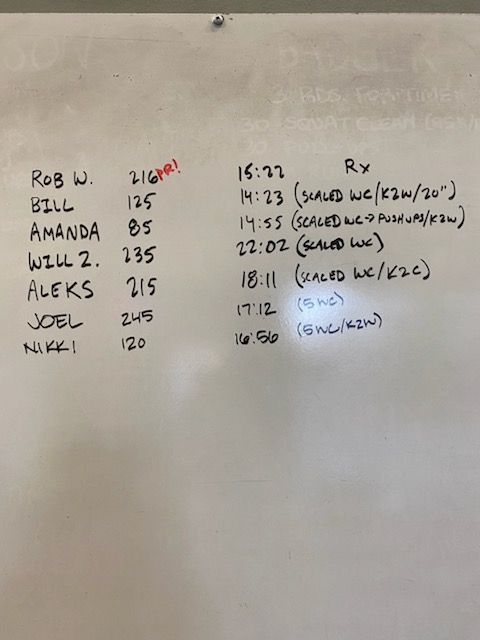 BADGER
3 RDS. FOR TIME
30 SQUAT CLEAN (95#/
ROB W. 216 PR! 15:22 Rx
BILL 125 14:23 (SCALED WC/K2W/20")
AMANDA 85 14:55 (SCALED WC→PUSHUPS/K2W)
WILL Z. 235 22:02 (SCALED WC)
ALEKS 215 18:11 (SCALED WC/K2C)
JOEL 245 17:12 (5 WC)
NIKKI 120 16:56 (5 WC/K2W)